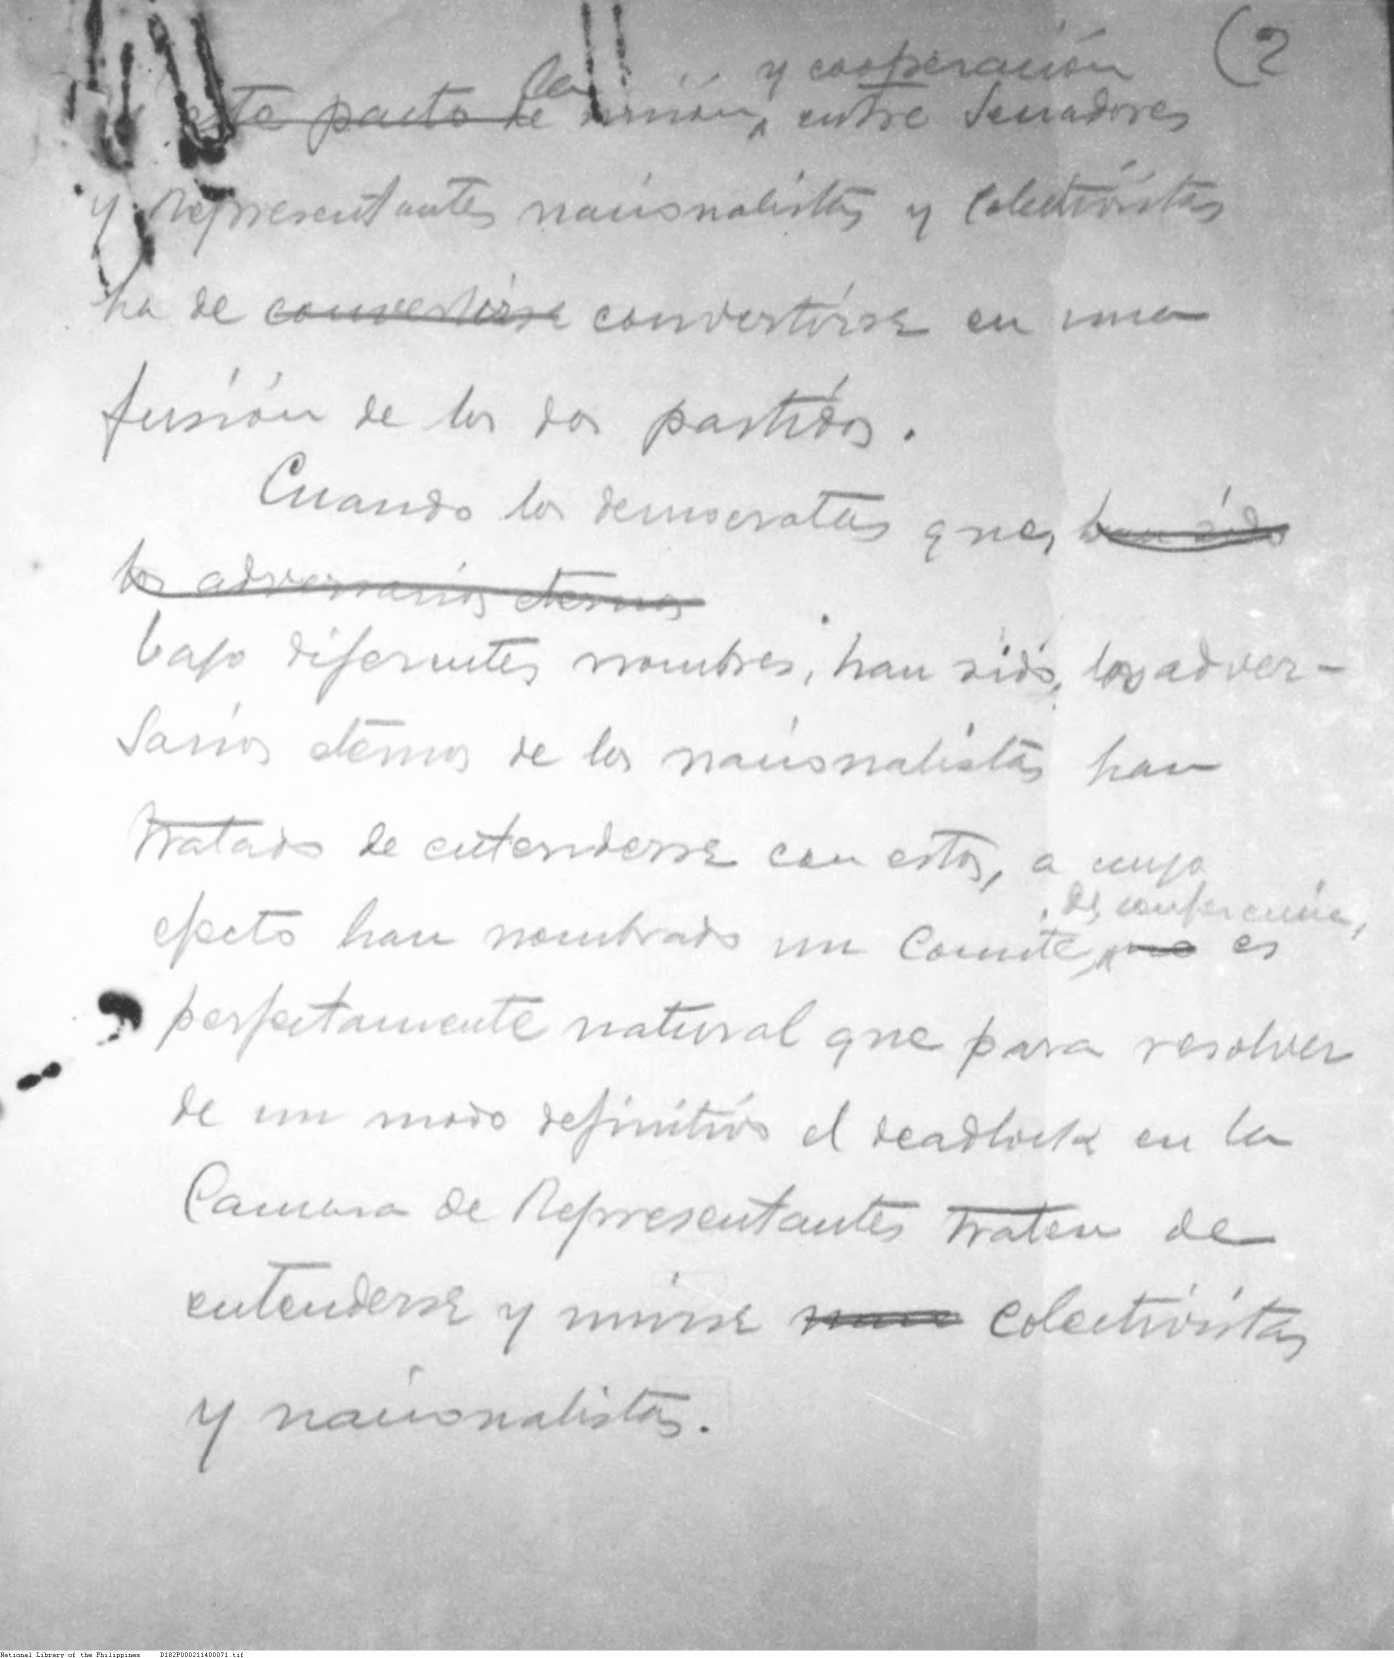 (2
la y cooperación
este pacto de unión, entre Senadores
y Representantes nacionalistas y Colectivistas
ha de convertirse convertirse en una
fusión de los dos partidos.
Cuando los democratas que, han sido
los adversarios eternos
bajo diferentes nombres, han sido, los adver-
sarios eternos de los nacionalistas han
tratado de entenderse con estos, a cuyo
de conferencia,
efecto han nombrado un Comite, es
perfectamente natural que para resolver
de un modo definitivo el deadlock en la
Camara de Representantes traten de
entenderse y unirse colectivistas
y nacionalistas.
National Library of the Philippines D182P000211400071.tif